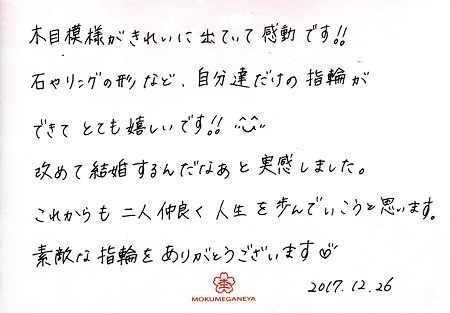 木目模様がきれいに出ていて感動です!!
石やリングの形など、自分達だけの指輪が
できてとても嬉しいです!!
改めて結婚するんだなぁと実感しました。
これからも二人仲良く人生を歩んでいこうと思います。
素敵な指輪をありがとうございます♡
MOKUMEGANEYA
2017.12.26